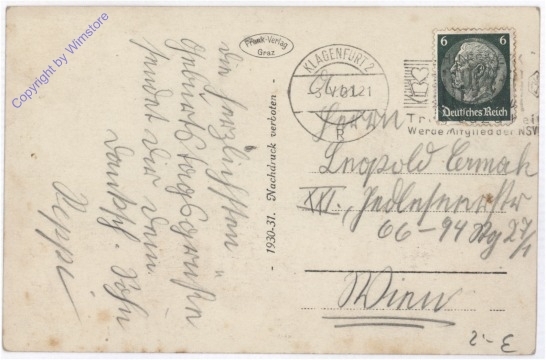 Copyright by Wimstore
Die herzlichsten
Geburtstagsgrüße
sendet dir dein
dankb. Sohn
Peppi
Frank-Verlag
Graz
- 1930-31. Nachdruck verboten. -
KLAGENFURT 2
21
6 6
Deutsches Reich
Werde Mitglied der NSV
Herrn
Leopold
XXI., Jedleseerstr
66-94 Stg 27/1
Wien
2-3